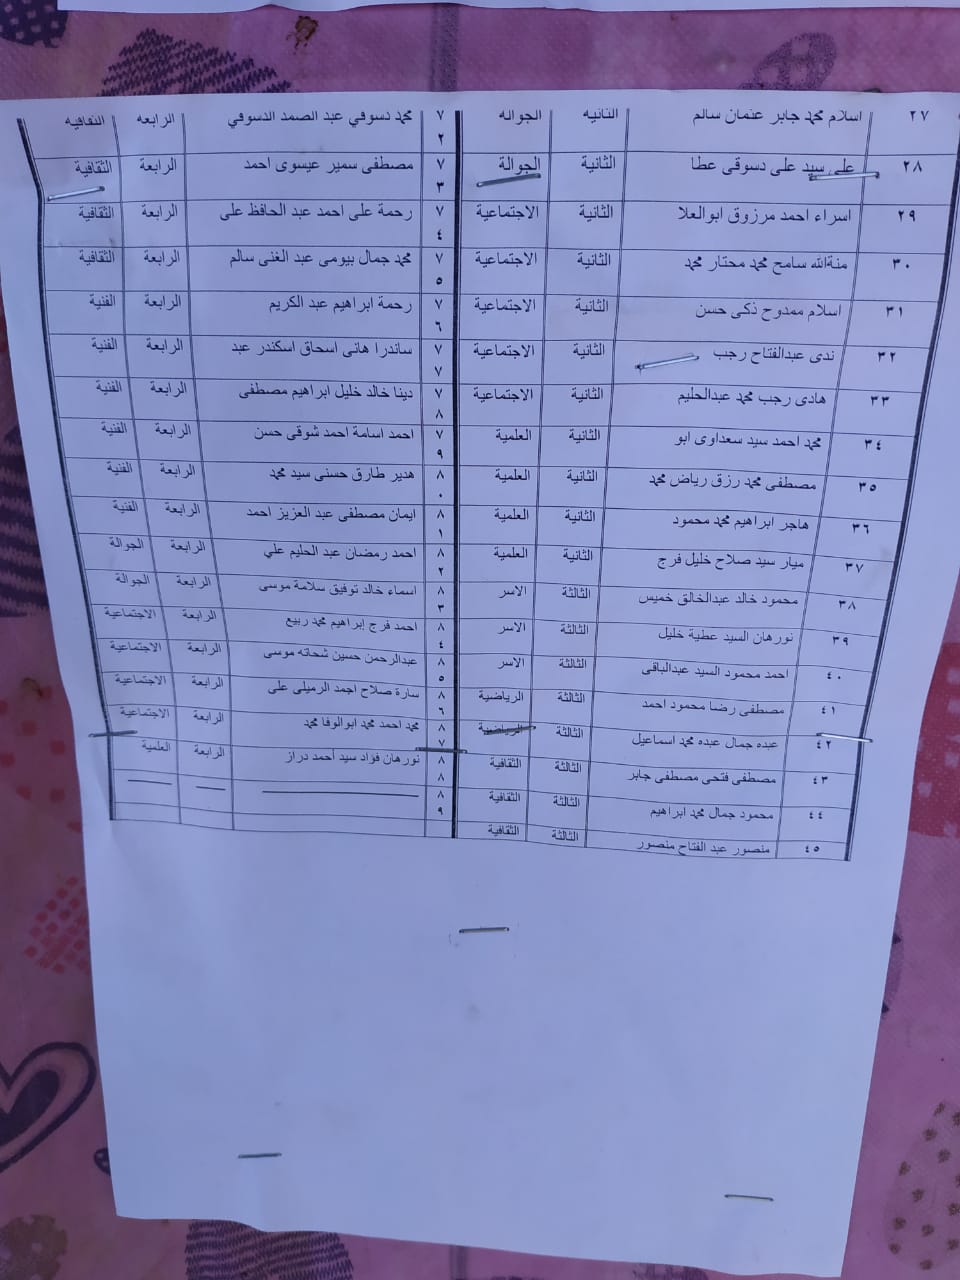 ٢٧ اسلام محمد جابر عثمان سالم الثانيه الجواله ٧٢ محمد دسوقي عبد الصمد الدسوقي الرابعه الثقافيه
٢٨ على سيد على دسوقى عطا الثانية الجوالة ٧٣ مصطفى سمير عيسوى احمد الرابعة الثقافية
٢٩ اسراء احمد مرزوق ابوالعلا الثانية الاجتماعية ٧٤ رحمة على احمد عبد الحافظ على الرابعة الثقافية
٣٠ منةالله سامح محمد مختار محمد الثانية الاجتماعية ٧٥ محمد جمال بيومى عبد الغنى سالم الرابعة الثقافية
٣١ اسلام ممدوح ذكى حسن الثانية الاجتماعية ٧٦ رحمة ابراهيم عبد الكريم الرابعة الفنية
٣٢ ندى عبدالفتاح رجب الثانية الاجتماعية ٧٧ ساندرا هانى اسحاق اسكندر عبد الرابعة الفنية
٣٣ هادى رجب محمد عبدالحليم الثانية الاجتماعية ٧٨ دينا خالد خليل ابراهيم مصطفى الرابعة الفنية
٣٤ محمد احمد سيد سعداوى ابو الثانية العلمية ٧٩ احمد اسامة احمد شوقى حسن الرابعة الفنية
٣٥ مصطفى محمد رزق رياض محمد الثانية العلمية ٨٠ هدير طارق حسنى سيد محمد الرابعة الفنية
٣٦ هاجر ابراهيم محمد محمود الثانية العلمية ٨١ ايمان مصطفى عبد العزيز احمد الرابعة الفنية
٣٧ ميار سيد صلاح خليل فرج الثانية العلمية ٨٢ احمد رمضان عبد الحليم علي الرابعة الجوالة
٣٨ محمود خالد عبدالخالق خميس الثالثة الاسر ٨٣ اسماء خالد توفيق سلامة موسى الرابعة الجوالة
٣٩ نورهان السيد عطية خليل الثالثة الاسر ٨٤ احمد فرج إبراهيم محمد ربيع الرابعة الاجتماعية
٤٠ احمد محمود السيد عبدالباقى الثالثة الاسر ٨٥ عبدالرحمن حسين شحاته موسى الرابعة الاجتماعية
٤١ مصطفى رضا محمود احمد الثالثة الرياضية ٨٦ سارة صلاح احمد الرميلى على الرابعة الاجتماعية
٤٢ عبده جمال عبده محمد اسماعيل الثالثة الرياضية ٨٧ محمد احمد محمد ابوالوفا محمد الرابعة الاجتماعية
٤٣ مصطفى فتحى مصطفى جابر الثالثة الثقافية ٨٨ نورهان فؤاد سيد أحمد دراز الرابعة العلمية
٤٤ محمود جمال محمد ابراهيم الثالثة الثقافية ٨٩
٤٥ منصور عبد الفتاح منصور الثالثة الثقافية